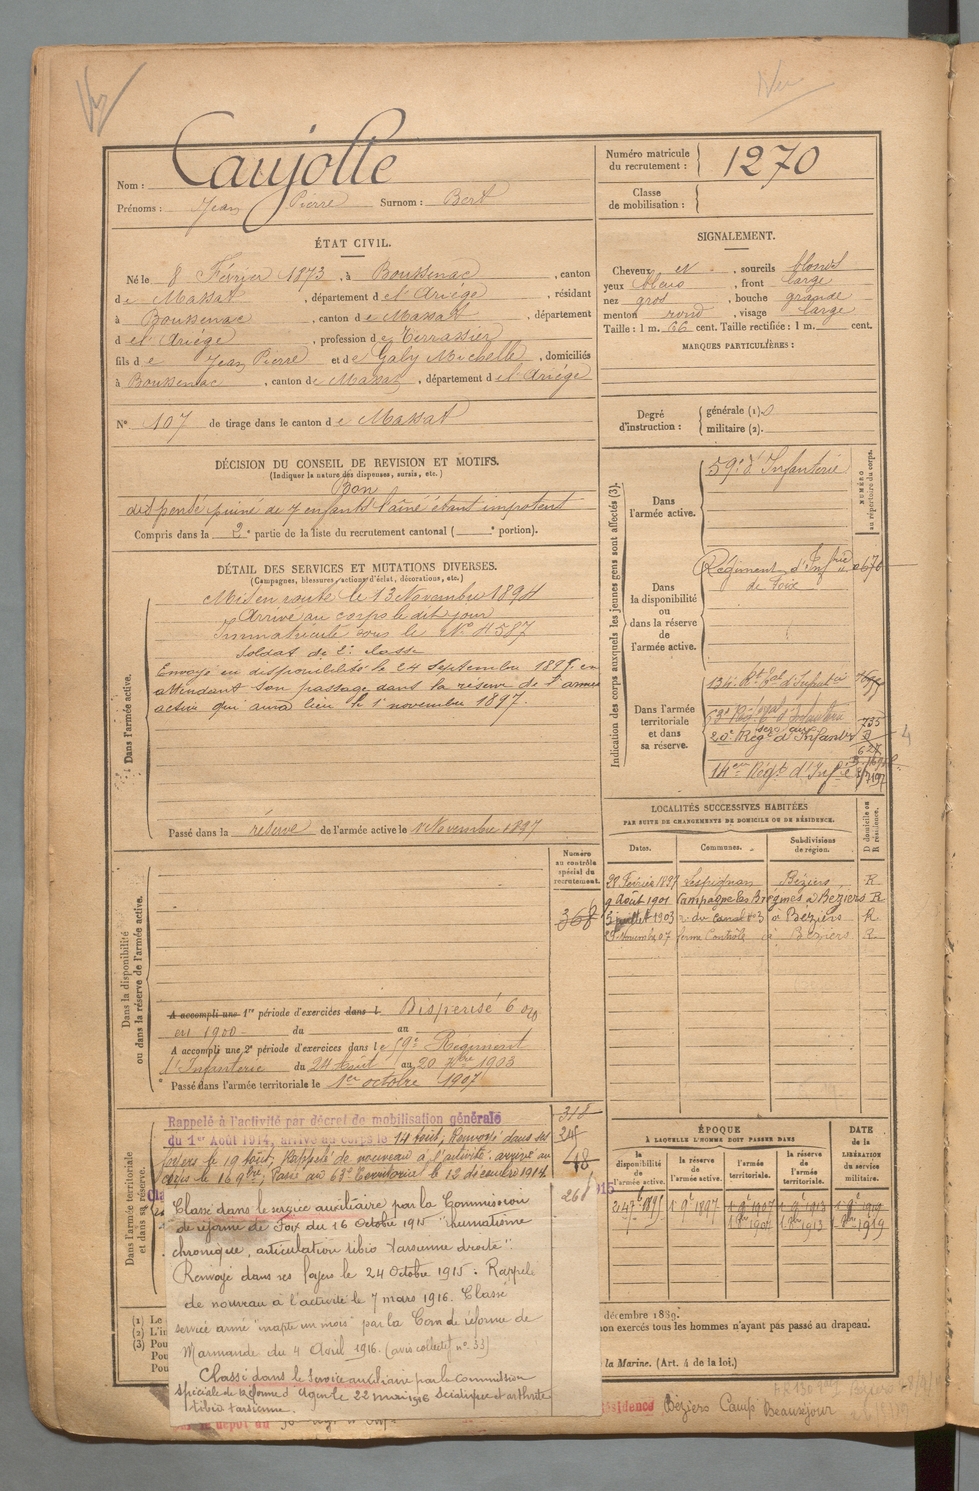 Nom : Caujolle
Prénoms : Jean Pierre Surnom : Bert
Numéro matricule du recrutement : 1270
Classe de mobilisation :
ÉTAT CIVIL.
Né le 8 Février 1873, à Boussenac, canton
de Massat, département de l'Ariège, résidant
à Boussenac, canton de Massat, département
de l'Ariège, profession de Terrassier
fils de Jean Pierre et de Galy Michelle, domiciliés
à Boussenac, canton de Massat, département de l'Ariège
N° 107 de tirage dans le canton de Massat
SIGNALEMENT.
Cheveux et, sourcils blonds
yeux bleus, front large
nez gros, bouche grande
menton rond, visage large
Taille : 1 m. 66 cent. Taille rectifiée : 1 m. cent.
MARQUES PARTICULIÈRES :
Degré d'instruction : générale (1) 0
militaire (2).
DÉCISION DU CONSEIL DE REVISION ET MOTIFS.
(Indiquer la nature des dispenses, sursis, etc.)
Bon
dispensé puiné de 7 enfants l'aîné étant impotent
Compris dans la 2e partie de la liste du recrutement cantonal ( e portion).
DÉTAIL DES SERVICES ET MUTATIONS DIVERSES.
(Campagnes, blessures, actions d'éclat, décorations, etc.)
Dans l'armée active.
Mis en route le 13 Novembre 1894
Arrivé au corps le dit jour
Immatriculé sous le N° 4587
Soldat de 2e classe
Envoyé en disponibilité le 24 Septembre 1895 en
attendant son passage dans la réserve de l'armée
active qui aura lieu le 1er novembre 1897.
Passé dans la réserve de l'armée active le 1er Novembre 1897
Indication des corps auxquels les jeunes gens sont affectés (3).
NUMÉRO au répertoire du corps.
Dans l'armée active.
59e d'Infanterie
Dans la disponibilité ou dans la réserve de l'armée active.
Régiment d'Infrie de Foix
Dans l'armée territoriale et dans sa réserve.
134e Rt tal d'Infanterie
20e Régt d'Infanterie
14eme Régt d'Infie
LOCALITÉS SUCCESSIVES HABITÉES
PAR SUITE DE CHANGEMENTS DE DOMICILE OU DE RÉSIDENCE.
D domicile ou R résidence.
Dates. Communes. Subdivisions de région.
Février 1897 Lespignan Béziers R
9 Août 1901 Campagne las Brégines à Béziers R
5 juillet 1903 r. du canal n° 3 à Béziers R
Novembre 07 ferme Contrôle à Béziers R
Dans la disponibilité ou dans la réserve de l'armée active.
Numéro au contrôle spécial du recrutement.
368
A accompli une 1re période d'exercices dans l Dispensé 6 %
en 1900 du au
A accompli une 2e période d'exercices dans le 59e Régiment
d'Infanterie du 24 Août au 20 7bre 1903
Passé dans l'armée territoriale le 1er octobre 1907
Dans l'armée territoriale et dans sa réserve.
318
Rappelé à l'activité par décret de mobilisation générale
du 1er Août 1914, arrivé au corps le 14 Août, Renvoyé dans ses
foyers le 19 Août; Rappelé de nouveau à l'activité: arrivé au
corps le 16 9bre; Passé au 63e Territorial le 12 décembre 1914.
268
Classé dans le service auxiliaire par la Commission
de réforme de Foix du 16 Octobre 1915 "rhumatisme
chronique, articulation tibio tarsienne droite".
Renvoyé dans ses foyers le 24 Octobre 1915. Rappelé
de nouveau à l'activité le 7 mars 1916. Classé
service armé "inapte un mois" par la Com de réforme de
Marmande du 4 Avril 1916. (avis collectif n° 33)
Classé dans le service auxiliaire par la commission
spéciale de réforme d'Agen le 22 mai 1916 Sciatique et arthrite
tibio tarsienne.
ÉPOQUE
À LAQUELLE L'HOMME DOIT PASSER DANS
DATE de la LIBÉRATION du service militaire.
la disponibilité de l'armée active.
la réserve de l'armée active.
l'armée territoriale.
la réserve de l'armée territoriale.
24 7bre 1895 1 9e 1897 1 9e 1907 1 9e 1913 1 9e 1919
1 8bre 1907 1 8bre 1913 1919
(1) Le
(2) L'in
(3) Pou
Pou
Pou
décembre 1889.
non exercés tous les hommes n'ayant pas passé au drapeau.
la Marine. (Art. 4 de la loi.)
Résidence Béziers Camp Beauséjour